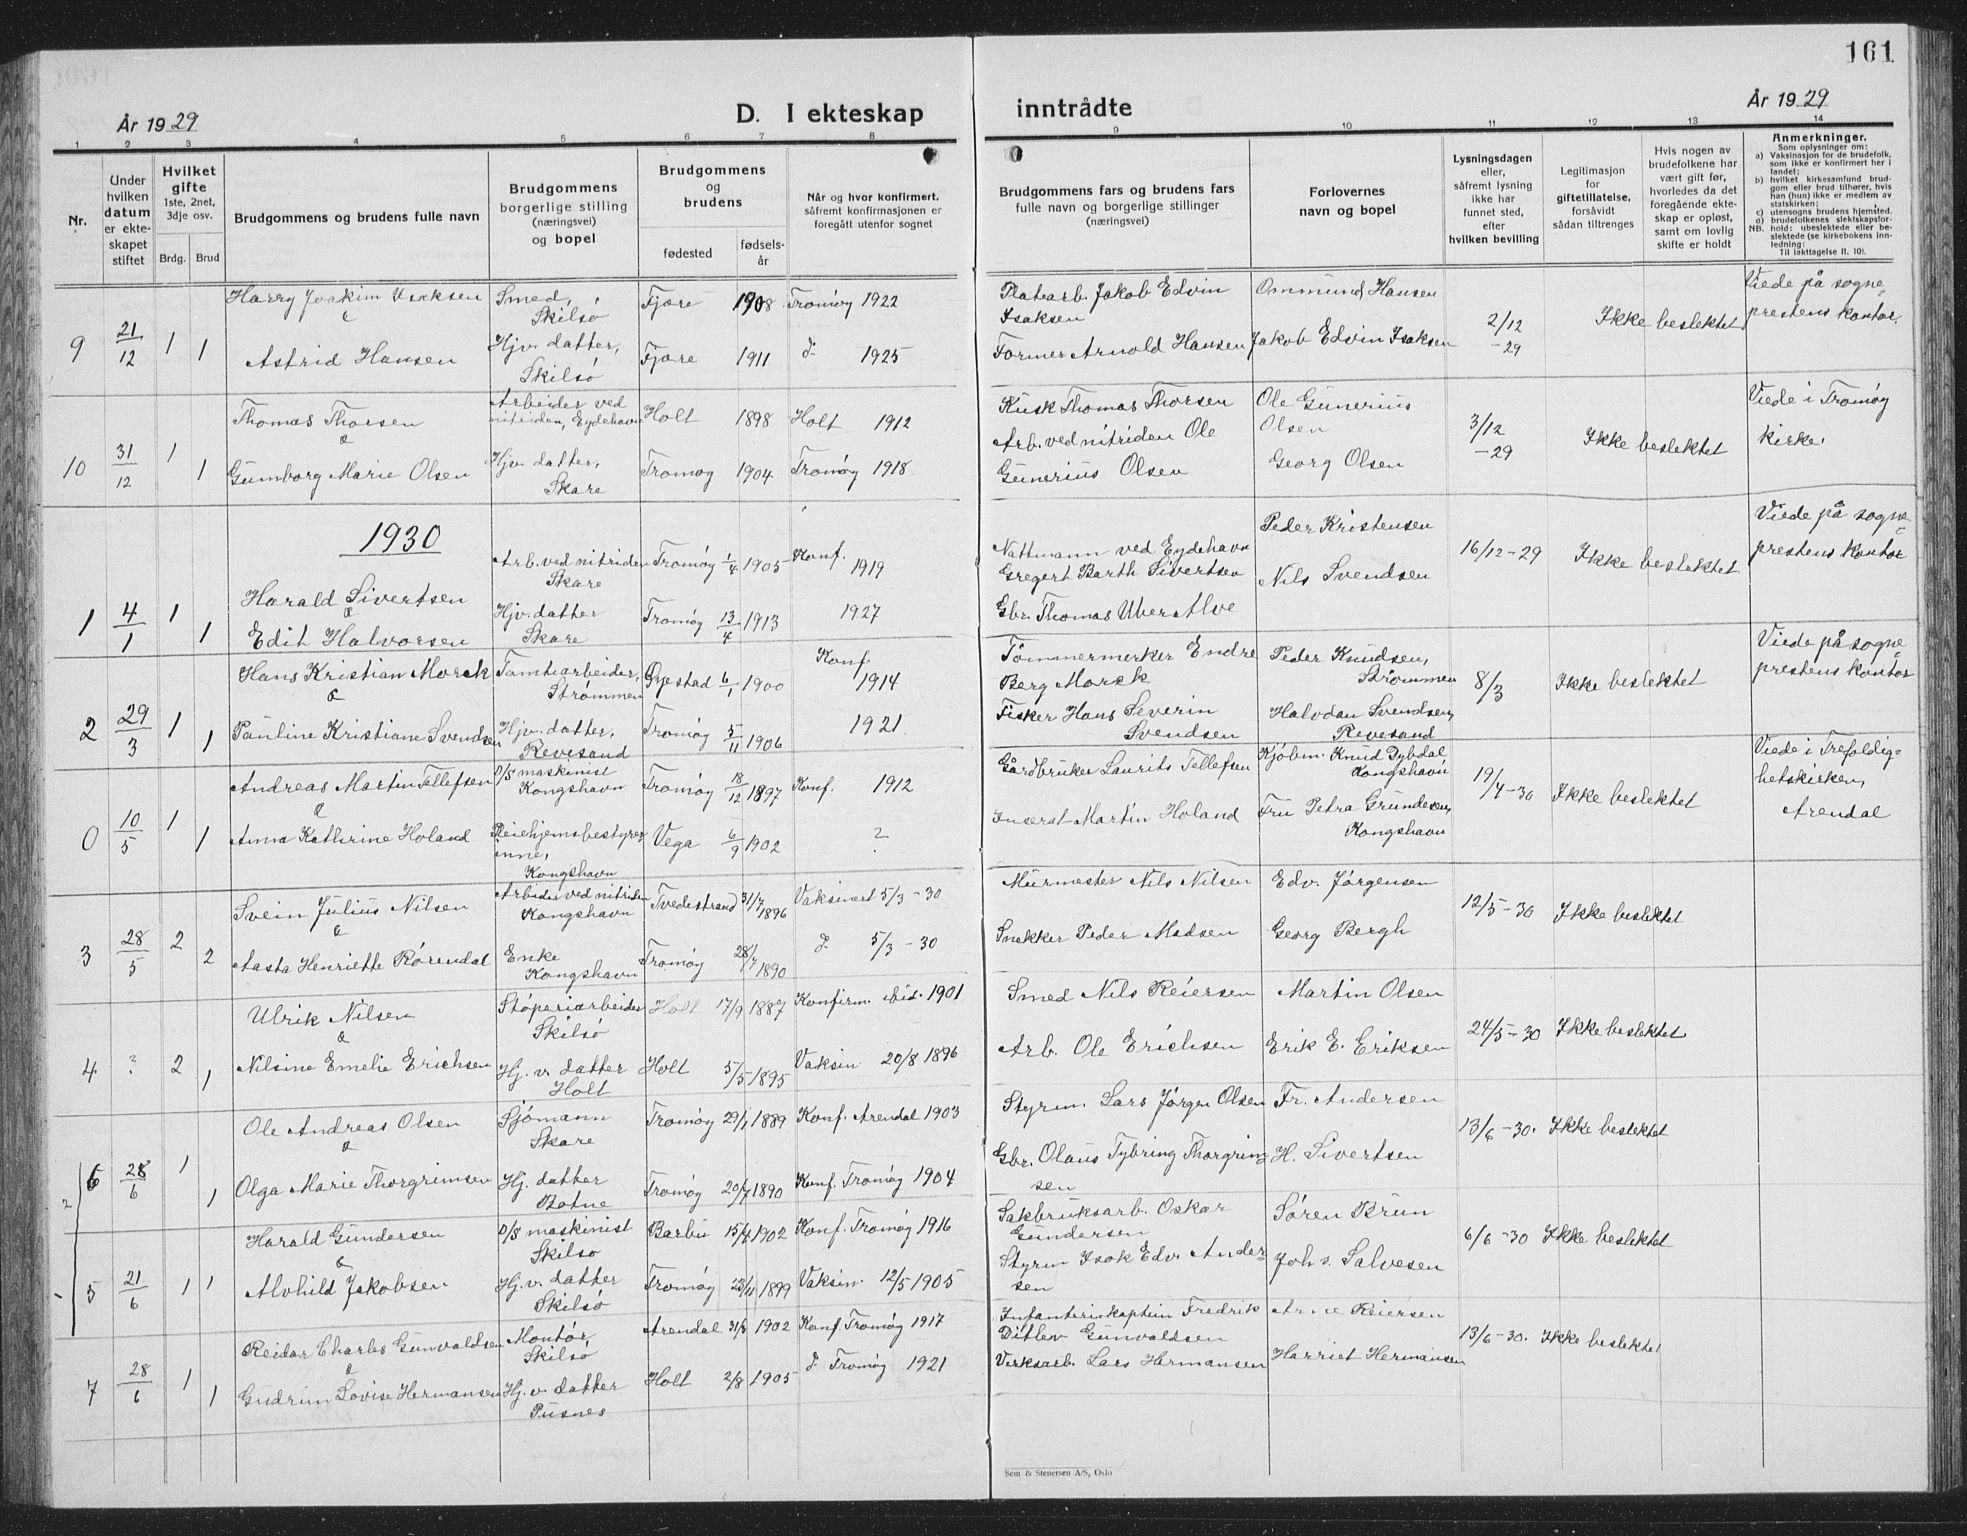 161
År 1929
D. I ekteskap
inntrådte
År 1929
1 2 3 4 5 6 7 8 9 10 11 12 13 14
Nr.
Under
hvilken
datum
er ekte-
skapet
stiftet
Hvilket
gifte
1ste, 2net,
3dje osv.
Brdg. Brud
Brudgommens og brudens fulle navn
Brudgommens
borgerlige stilling
(næringsvei)
og bopel
Brudgommens
og
brudens
fødested
fødsels-
år
Når og hvor konfirmert,
såfremt konfirmasjonen er
foregått utenfor sognet
Brudgommens fars og brudens fars
fulle navn og borgerlige stillinger
(næringsvei)
Forlovernes
navn og bopel
Lysningsdagen
eller,
såfremt lysning
ikke har
funnet sted,
efter
hvilken bevilling
Legitimasjon
for
giftetillatelse,
forsåvidt
sådan tiltrenges
Hvis nogen av
brudefolkene har
vært gift før,
hvorledes da det
foregående ekte-
skap er opløst,
samt om lovlig
skifte er holdt
Anmerkninger.
Som oplysninger om:
a) Vaksinasjon for de brudefolk,
som ikke er konfirmert her i
landet;
b) hvilket kirkesamfund brud-
gom eller brud tilhører, hvis
han (hun) ikke er medlem av
statskirken;
c) utensogns brudens hjemsted.
d) brudefolkenes slektskapsfor-
NB. hold: ubeslektede eller be-
slektede (se kirkebokens inn-
ledning:
Til iakttagelse II. 10).
9 21/12 1 1
Harry Joakim Isaksen
&
Astrid Hansen
Smed,
Skilsø
Hjv. datter,
Skilsø
Fjære 1908 Tromøy 1922
Fjære 1911 d. 1925
Platearb. Jakob Edvin
Isaksen
Former Arnold Hansen
Ommund Hansen
Jakob Edvin Isaksen
2/12
-29
Ikke beslektet
Viede på sogne-
prestens kontor.
10 31/12 1 1
Thomas Thorsen
&
Gunborg Marie Olsen
Arbeider ved
nitriden, Eydehavn
Hjv. datter,
Skare
Holt 1898 Holt 1912
Tromøy 1904 Tromøy 1918
Kusk Thomas Thorsen
Arb. ved nitriden Ole
Gunerius Olsen
Ole Gunerius
Olsen
Georg Olsen
3/12
-29
Ikke beslektet
Viede i Tromøy
kirke.
1930
1 4/1 1 1
Harald Sivertsen
&
Edit Halvorsen
Arb. ved nitriden
Skare
Hjv. datter
Skare
Tromøy 1/4 1905 Konf. 1919
Tromøy 13/4 1913 1927
Nattmann ved Eydehavn
Gregert Barth Sivertsen
Gbr. Thomas Alve
Peder Kristensen
Nils Svendsen
16/12-29
Ikke beslektet
Viede på sogne-
prestens kontor
2 29/3 1 1
Hans Kristian Morck
&
Pauline Kristiane Svendsen
Tomtearbeider,
Strømmen
Hjv. datter,
Revesand
Øyestad 6/1 1900 Konf. 1914
Tromøy 5/11 1906 1921
Tømmermerker Endre
Berg Morck
Fisker Hans Severin
Svendsen
Peder Knudsen,
Strømmen
Halvdan Svendsen,
Revesand
8/3
Ikke beslektet
Viede på sogne-
prestens kontor
0 10/5 1 1
Andreas Martin Tellefsen
&
Anna Kathrine Holand
D/S maskinist
Kongshavn
Pleiehjemsbestyrer-
inne,
Kongshavn
Tromøy 18/12 1897 Konf. 1912
Vega 6/9 1902 ?
Gårdbruker Laurits Tellefsen
Martin Holand
Kjøbm. Knud Dybdal,
Kongshavn
Fru Petra Gundersen,
Kongshavn
19/4-30
Ikke beslektet
Viede i Trefoldig-
hetskirken,
Arendal
3 28/5 2 2
Svein Julius Nilsen
&
Aasta Henriette Rørendal
Arbeider ved nitriden
Kongshavn
Enke
Kongshavn
Tvedestrand 31/7 1896 Vaksinert 5/3-30
Tromøy 28/7 1890 d. 5/3-30
Murmester Nils Nilsen
Snekker Peder Madsen
Edv. Jørgensen
Georg Bergh
12/5-30
Ikke beslektet
4 ? 2 1
Ulrik Nilsen
&
Nilsine Emelie Erichsen
Støperiarbeider
Skilsø
Hj. v. datter
Holt
Holt 17/9 1887 Konfirm. ibid. 1901
Holt 5/5 1895 Vaksin. 20/8 1896
Smed Nils Reiersen
Arb. Ole Erichsen
Martin Olsen
Erik E. Eriksen
24/5-30
Ikke beslektet
6 28/6 1 1
Ole Andreas Olsen
&
Olga Marie Thorgrimsen
Sjømann
Skare
Hj. datter
Botne
Tromøy 29/1 1889 Konf. Arendal 1903
Tromøy 20/7 1890 Konf. Tromøy 1904
Styrm. Lars Jørgen Olsen
Gbr. Olaus Tybring Thorgrim-
sen
Fr. Andersen
H. Sivertsen
13/6-30.
Ikke beslektet
5 21/6 1 1
Harald Gundersen
&
Alvhild Jakobsen
D/S maskinist
Skilsø
Hj. v. datter
Skilsø
Barbu 15/4 1902 Konf. Tromøy 1916
Tromøy 23/4 1899 Vaksin. 12/5 1905
Sakbruksarb. Oskar
Gundersen
Styrm Isak Edv. Ander-
sen
Søren Brun
Johs. Salvesen
6/6-30
Ikke beslektet
7 28/6 1 1
Reidar Charles Gunvaldsen
&
Gudrun Lovise Hermansen
Montør,
Skilsø
Hj. v. datter
Pusnes
Arendal 31/3 1902 Konf Tromøy 1917
Holt 2/8 1905 d. Tromøy 1921
Infanterikaptein Fredrik
Ditlev Gunvaldsen
Verksarb. Lars Hermansen
Arne Reiersen
Harriet Hermansen
13/6-30.
Ikke beslektet
Sem & Stenersen A/S, Oslo